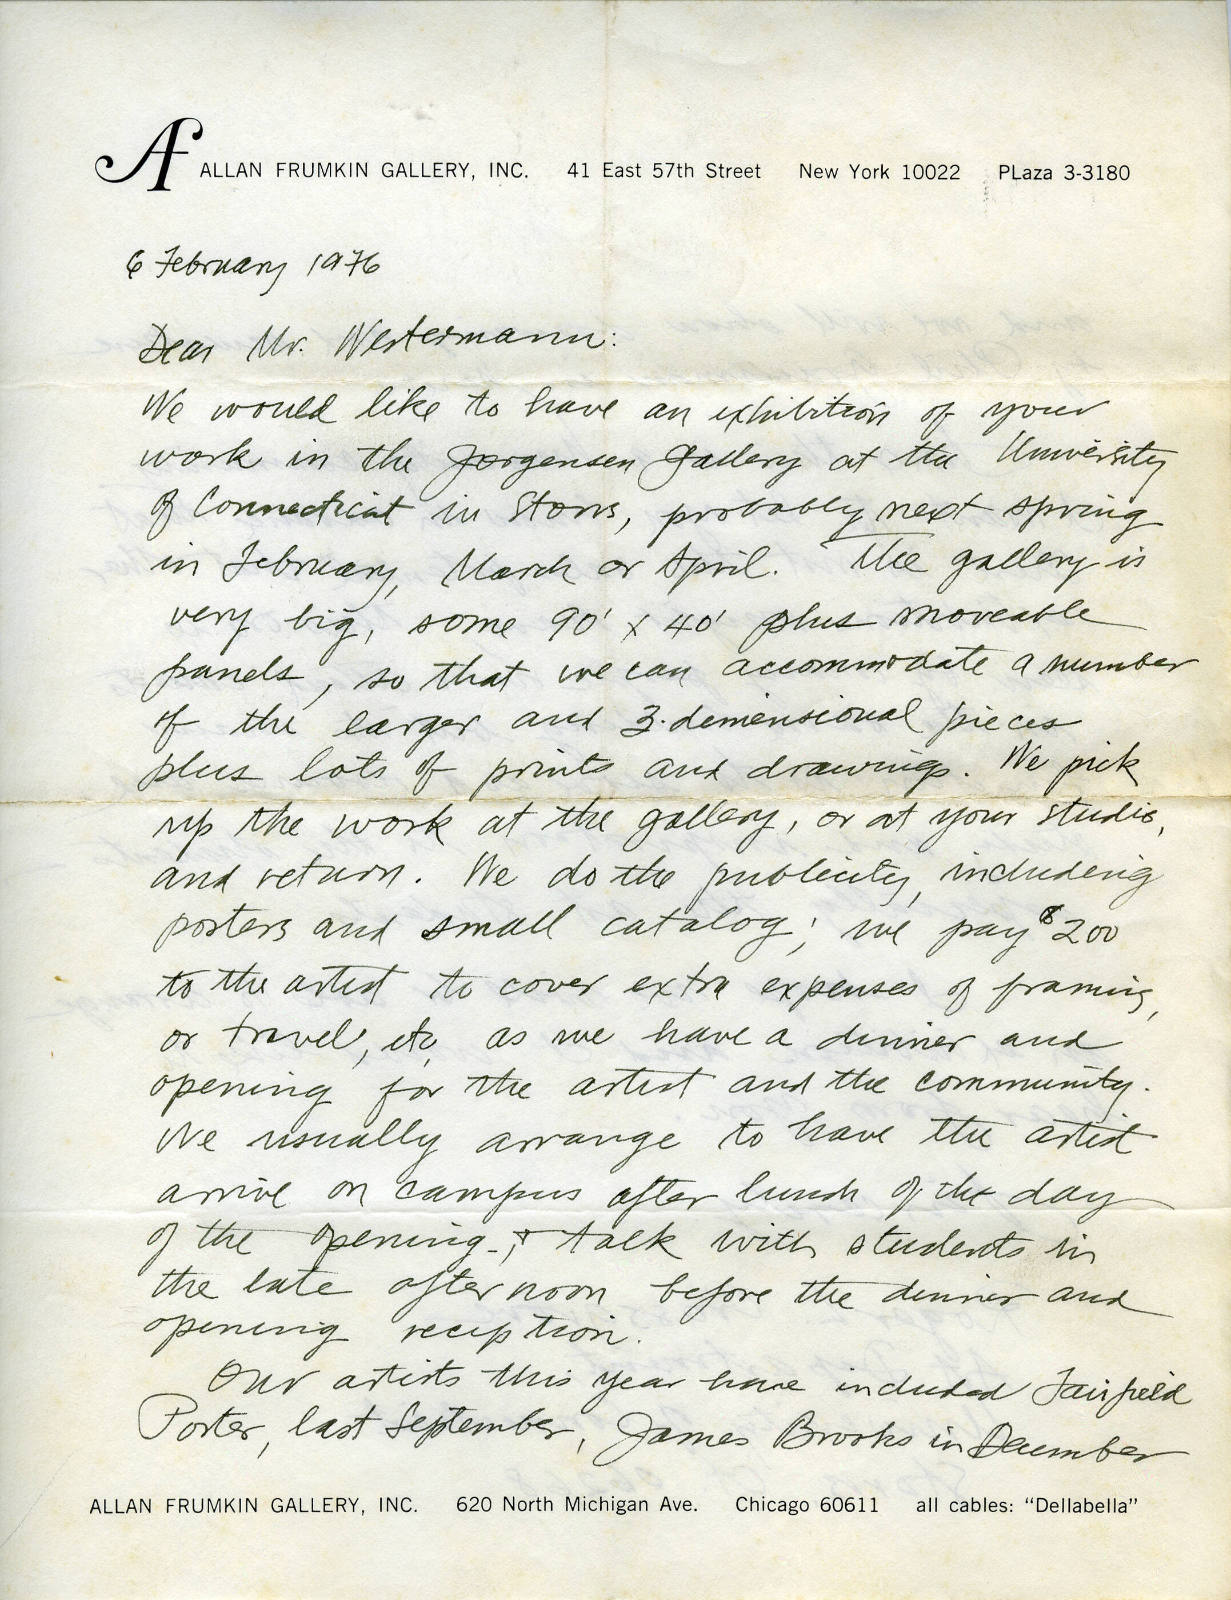 AF ALLAN FRUMKIN GALLERY, INC. 41 East 57th Street New York 10022 PLaza 3-3180
6 February 1976
Dear Mr. Westermann:
We would like to have an exhibition of your
work in the Jorgensen Gallery at the University
of Connecticut in Storrs, probably next spring
in February, March or April. The gallery is
very big, some 90' x 40' plus moveable
panels, so that we can accommodate a number
of the larger and 3-demensional pieces
plus lots of prints and drawings. We pick
up the work at the gallery, or at your studio,
and return. We do the publicity, including
posters and small catalog; we pay $200
to the artist to cover extra expenses of framing,
or travel, etc, as we have a dinner and
opening for the artist and the community.
We usually arrange to have the artist
arrive on campus after lunch of the day
of the opening, & talk with students in
the late afternoon before the dinner and
opening reception.
Our artists this year have included Fairfield
Porter, last September, James Brooks in December
ALLAN FRUMKIN GALLERY, INC. 620 North Michigan Ave. Chicago 60611 all cables: "Dellabella"